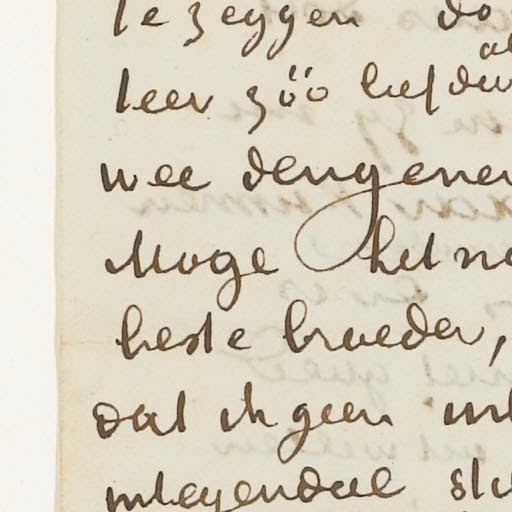 te zeggen do
leer zóó liefde
wee dengenen
Moge het n
beste broeder,
dat ik geen in
integendeel st